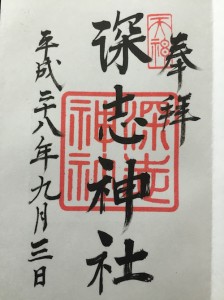 奉拝
天神
深志神社
深志神社
平成二十八年九月三日